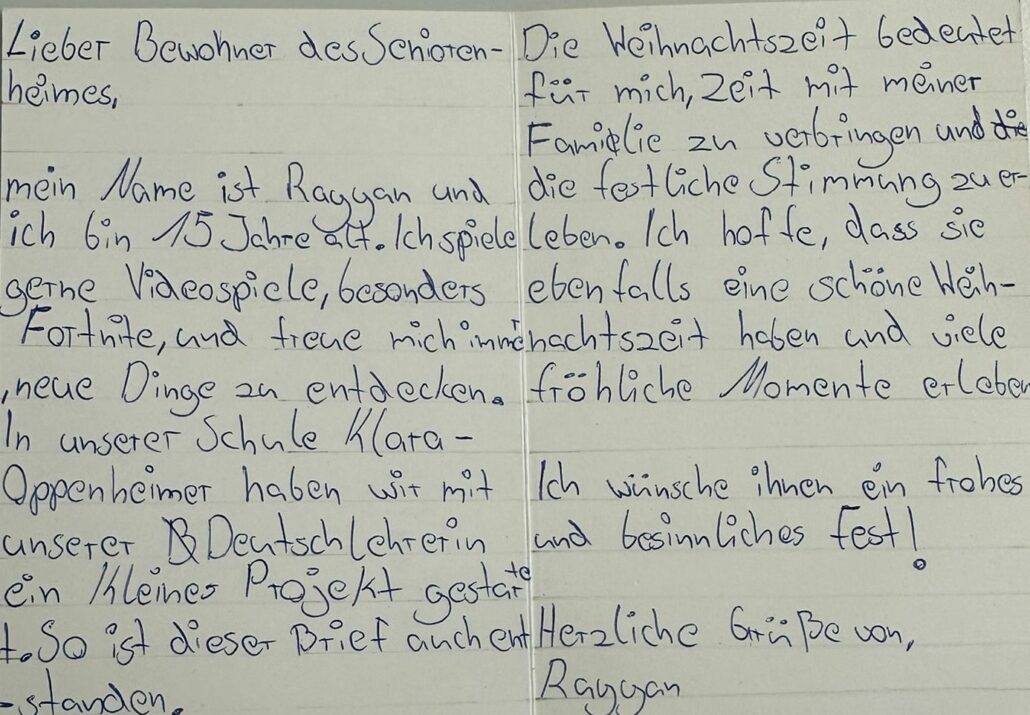 Lieber Bewohner des Senioren-
heimes,
mein Name ist Rayyan und
ich bin 15 Jahre alt. Ich spiele
gerne Videospiele, besonders
Fortnite, und freue mich immer
, neue Dinge zu entdecken.
In unserer Schule Klara-
Oppenheimer haben wir mit
unserer Deutschlehrerin
ein kleines Projekt gestarte
t. So ist dieser Brief auch ent
-standen.
Die Weihnachtszeit bedeutet
für mich, Zeit mit meiner
Familie zu verbringen und die
die festliche Stimmung zu er-
leben. Ich hoffe, dass sie
ebenfalls eine schöne Weih-
nachtszeit haben und viele
fröhliche Momente erleben
Ich wünsche ihnen ein frohes
und besinnliches Fest!
Herzliche Grüße von,
Rayyan